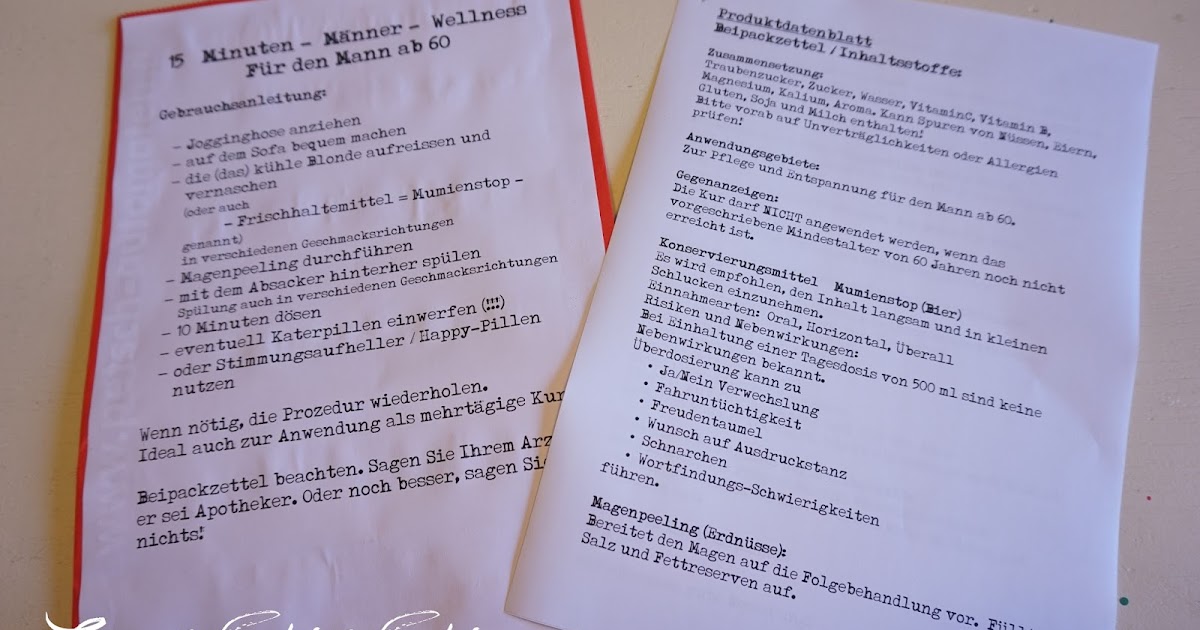 15 Minuten - Männer - Wellness
Für den Mann ab 60
Gebrauchsanleitung:
- Jogginghose anziehen
- auf dem Sofa bequem machen
- die (das) kühle Blonde aufreissen und
vernaschen
(oder auch
- Frischhaltemittel = Mumienstop -
genannt)
in verschiedenen Geschmacksrichtungen
- Magenpeeling durchführen
- mit dem Absacker hinterher spülen
Spülung auch in verschiedenen Geschmacksrichtungen
- 10 Minuten dösen
- eventuell Katerpillen einwerfen (!!!)
- oder Stimmungsaufheller / Happy-Pillen
nutzen
Wenn nötig, die Prozedur wiederholen.
Ideal auch zur Anwendung als mehrtägige Kur
Beipackzettel beachten. Sagen Sie Ihrem Arz
er sei Apotheker. Oder noch besser, sagen Sie
nichts!
Produktdatenblatt
Beipackzettel / Inhaltsstoffe:
Zusammensetzung:
Traubenzucker, Zucker, Wasser, VitaminC, Vitamin B,
Magnesium, Kalium, Aroma. Kann Spuren von Nüssen, Eiern,
Gluten, Soja und Milch enthalten!
Bitte vorab auf Unverträglichkeiten oder Allergien
prüfen!
Anwendungsgebiete:
Zur Pflege und Entspannung für den Mann ab 60.
Gegenanzeigen:
Die Kur darf NICHT angewendet werden, wenn das
vorgeschriebene Mindestalter von 60 Jahren noch nicht
erreicht ist.
Konservierungsmittel Mumienstop (Bier)
Es wird empfohlen, den Inhalt langsam und in kleinen
Schlucken einzunehmen.
Einnahmearten: Oral, Horizontal, Überall
Risiken und Nebenwirkungen:
Bei Einhaltung einer Tagesdosis von 500 ml sind keine
Nebenwirkungen bekannt.
Überdosierung kann zu
• Ja/Nein Verwechslung
• Fahruntüchtigkeit
• Freudentaumel
• Wunsch auf Ausdruckstanz
• Schnarchen
• Wortfindungs-Schwierigkeiten
führen.
Magenpeeling (Erdnüsse):
Bereitet den Magen auf die Folgebehandlung vor. Füll
Salz und Fettreserven auf.